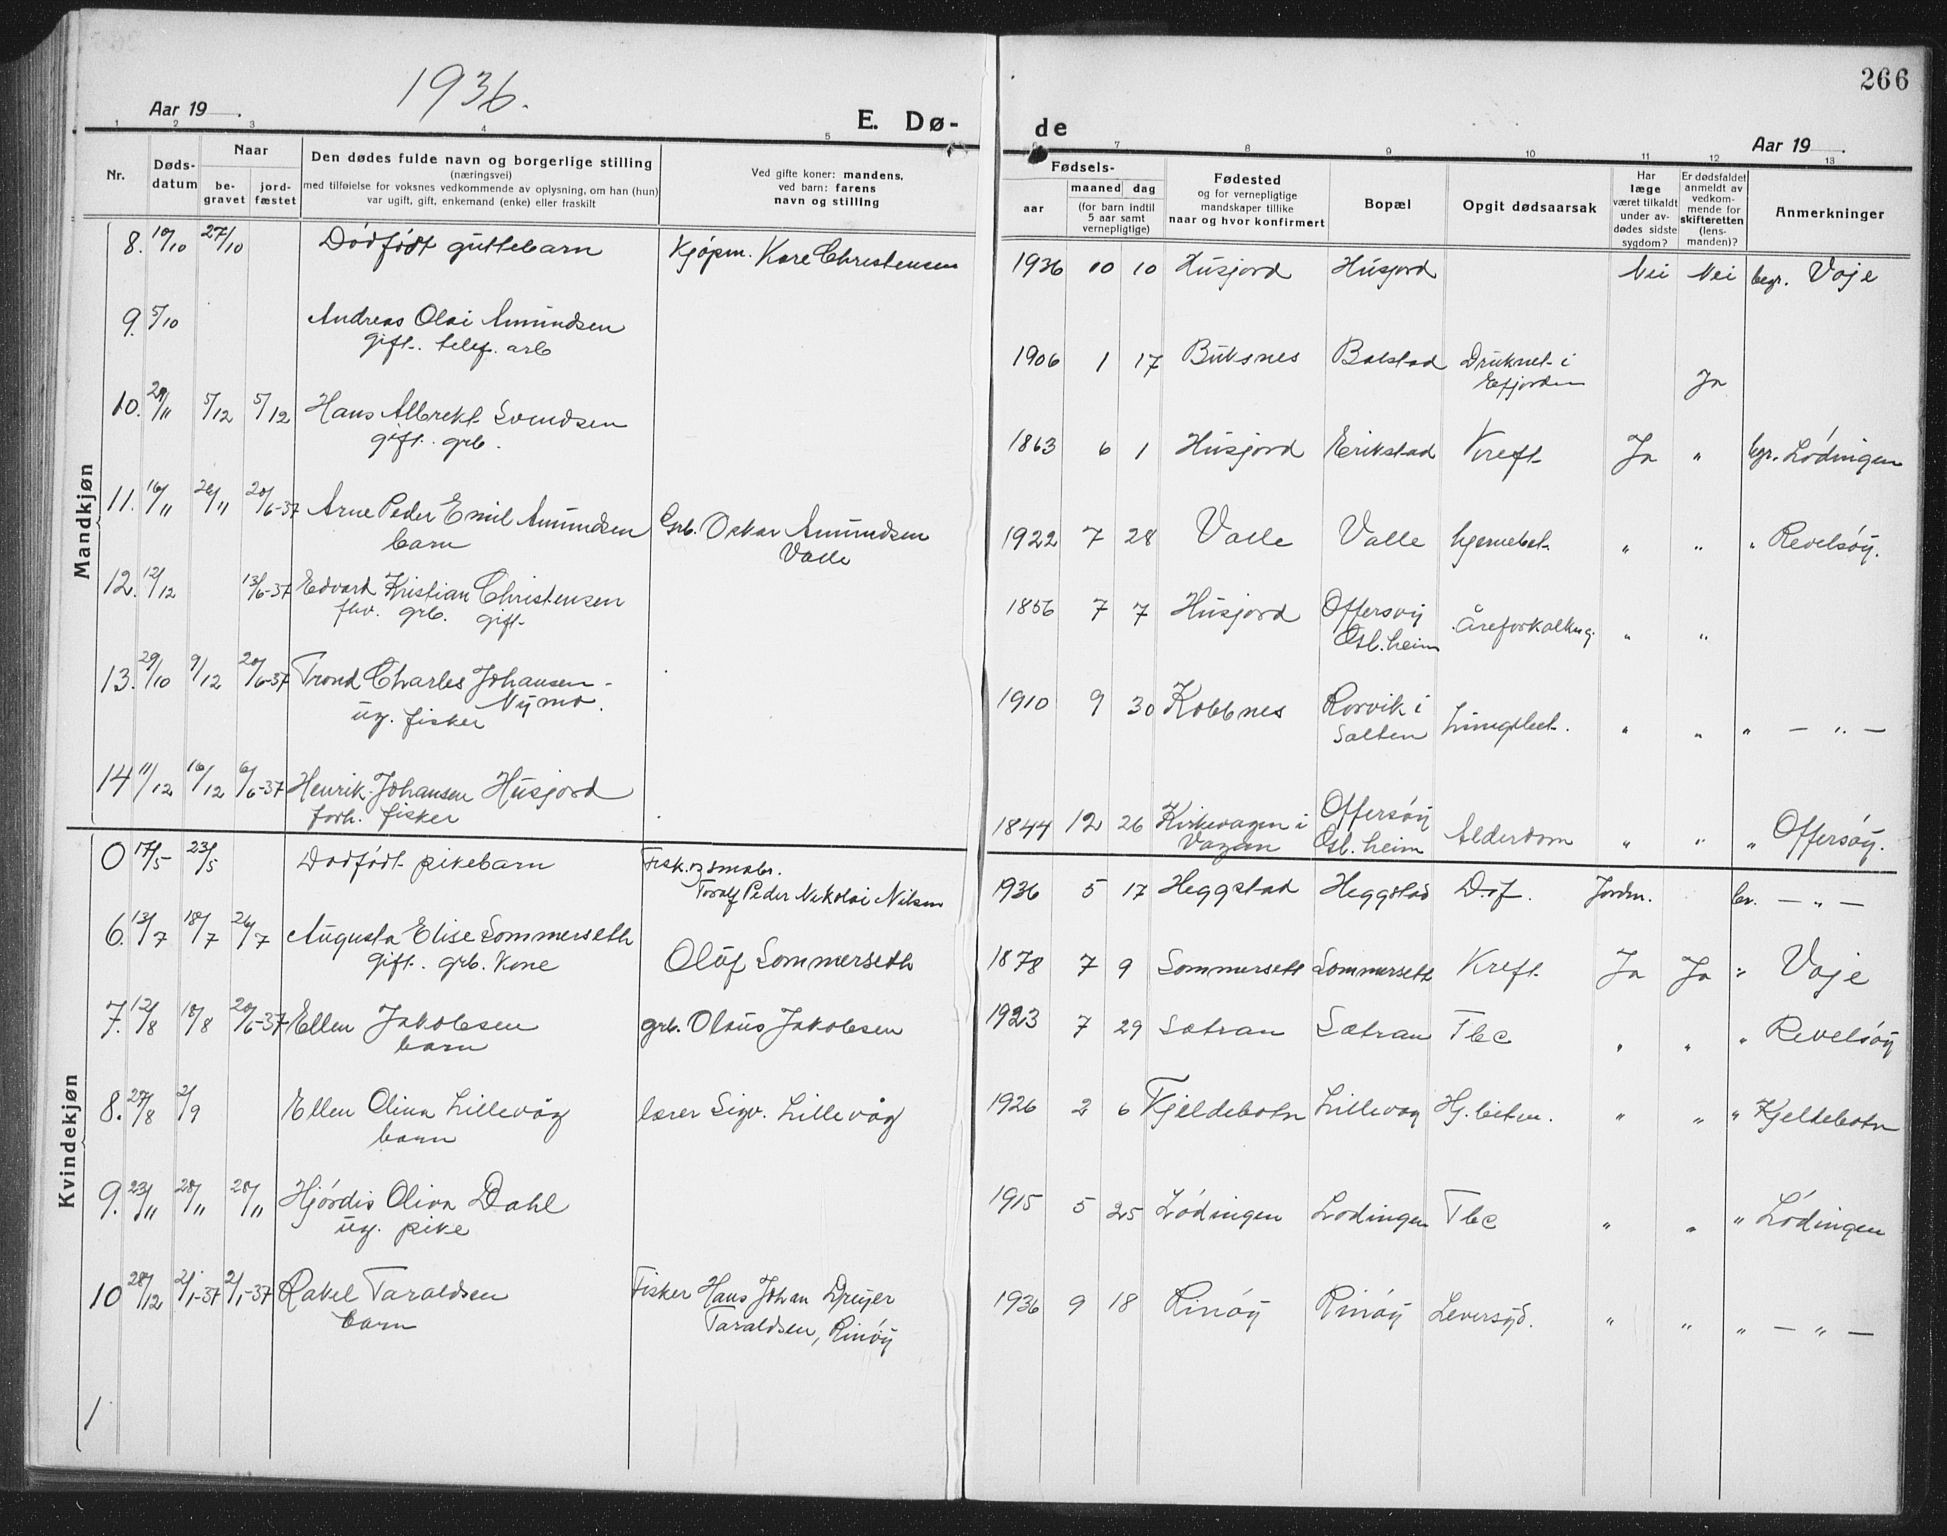 266
Aar 19 1936.
E. Dø-
de
Aar 19
1 2 3 4 5 7 8 9 10 11 12 13
Nr.
Døds-
datum
Naar
be-
gravet
jord-
fæstet
Den dødes fulde navn og borgerlige stilling
(næringsvei)
med tilføielse for voksnes vedkommende av oplysning, om han (hun)
var ugift, gift, enkemand (enke) eller fraskilt
Ved gifte koner: mandens,
ved barn: farens
navn og stilling
Fødsels-
aar
maaned dag
(for barn indtil
5 aar samt
vernepligtige)
Fødested
og for vernepligtige
mandskaper tillike
naar og hvor konfirmert
Bopæl
Opgit dødsaarsak
Har
læge
været tilkaldt
under av-
dødes sidste
sygdom?
Er dødsfaldet
anmeldt av
vedkom-
mende for
skifteretten
(lens-
manden)?
Anmerkninger
Mandkjøn
8. 10/10 27/10 Dødfødt guttebarn Kjøpm. Kare Christensen 1936 10 10 Husjord Husjord Nei Nei begr. Vaje
9. 5/10 Andreas Olai Amundsen 1906 1 17 Buksnes Balstad Druknet i
gift. telef. arb Efjorden Ja
10. 29/11 5/12 5/12 Hans Albrekt Svendsen 1863 6 1 Husjord Erikstad Kreft Ja " bgr. Lødingen
gift. grb.
11. 16/11 26/11 20/6-37 Arne Peder Emil Amundsen Grb. Oskar Amundsen 1922 7 28 Valle Valle hjernebet. " " " Revelsøy.
barn Valle
12. 12/12 13/6-37 Edvard Kristian Christensen 1856 7 7 Husjord Offersøy Åreforkalkng. " "
fhv. grb. gift Osb. heim
13. 29/10 9/12 20/6-37 Trond Charles Johansen- 1910 9 30 Kobbnes Rorvik i Lungebet. " " " — " —
Nymo. Salten
ug. fisker
14 11/12 16/12 6/6-37 Henrik Johansen Husjord 1844 12 26 Kirkevagen i Offersøy Alderdom " " " Offersøy.
forh. fisker Vagan Osb. heim
Kvindekjøn
0 17/5 23/5 Dødfødt pikebarn Fisk. og smabr. 1936 5 17 Heggstad Heggstad D.f. Jordm. br. — " —
Toralf Peder Nikolai Nilsen
6. 13/7 18/7 26/7 Augusta Elise Sommerseth Oluf Sommerseth 1878 7 9 Sommerseth Sommerseth Kreft Ja Ja " Vaje
gift. grb. kone
7. 12/8 18/8 20/6-37 Ellen Jakobsen grb. Olaus Jakobsen 1923 7 29 Sætran Sætran Tbc " " " Revelsøy
barn
8. 27/8 2/9 Ellen Olina Lillevåg lærer Sigv. Lillevåg 1926 2 6 Kjeldebotn Lillevag Hj. beten. " " " Kjeldebotn
barn
9. 23/11 28/11 28/11 Hjørdis Oliva Dahl 1915 5 25 Lødingen Lødingen Tbc " " " Lødingen
ug. pike
10 28/12 2/1-37 2/1-37 Rakel Taraldsen Fisker Hans Johan Dreyer 1936 9 18 Rinøy Rinøy Leversyd. " " " — " —
barn Taraldsen, Rinøy
1